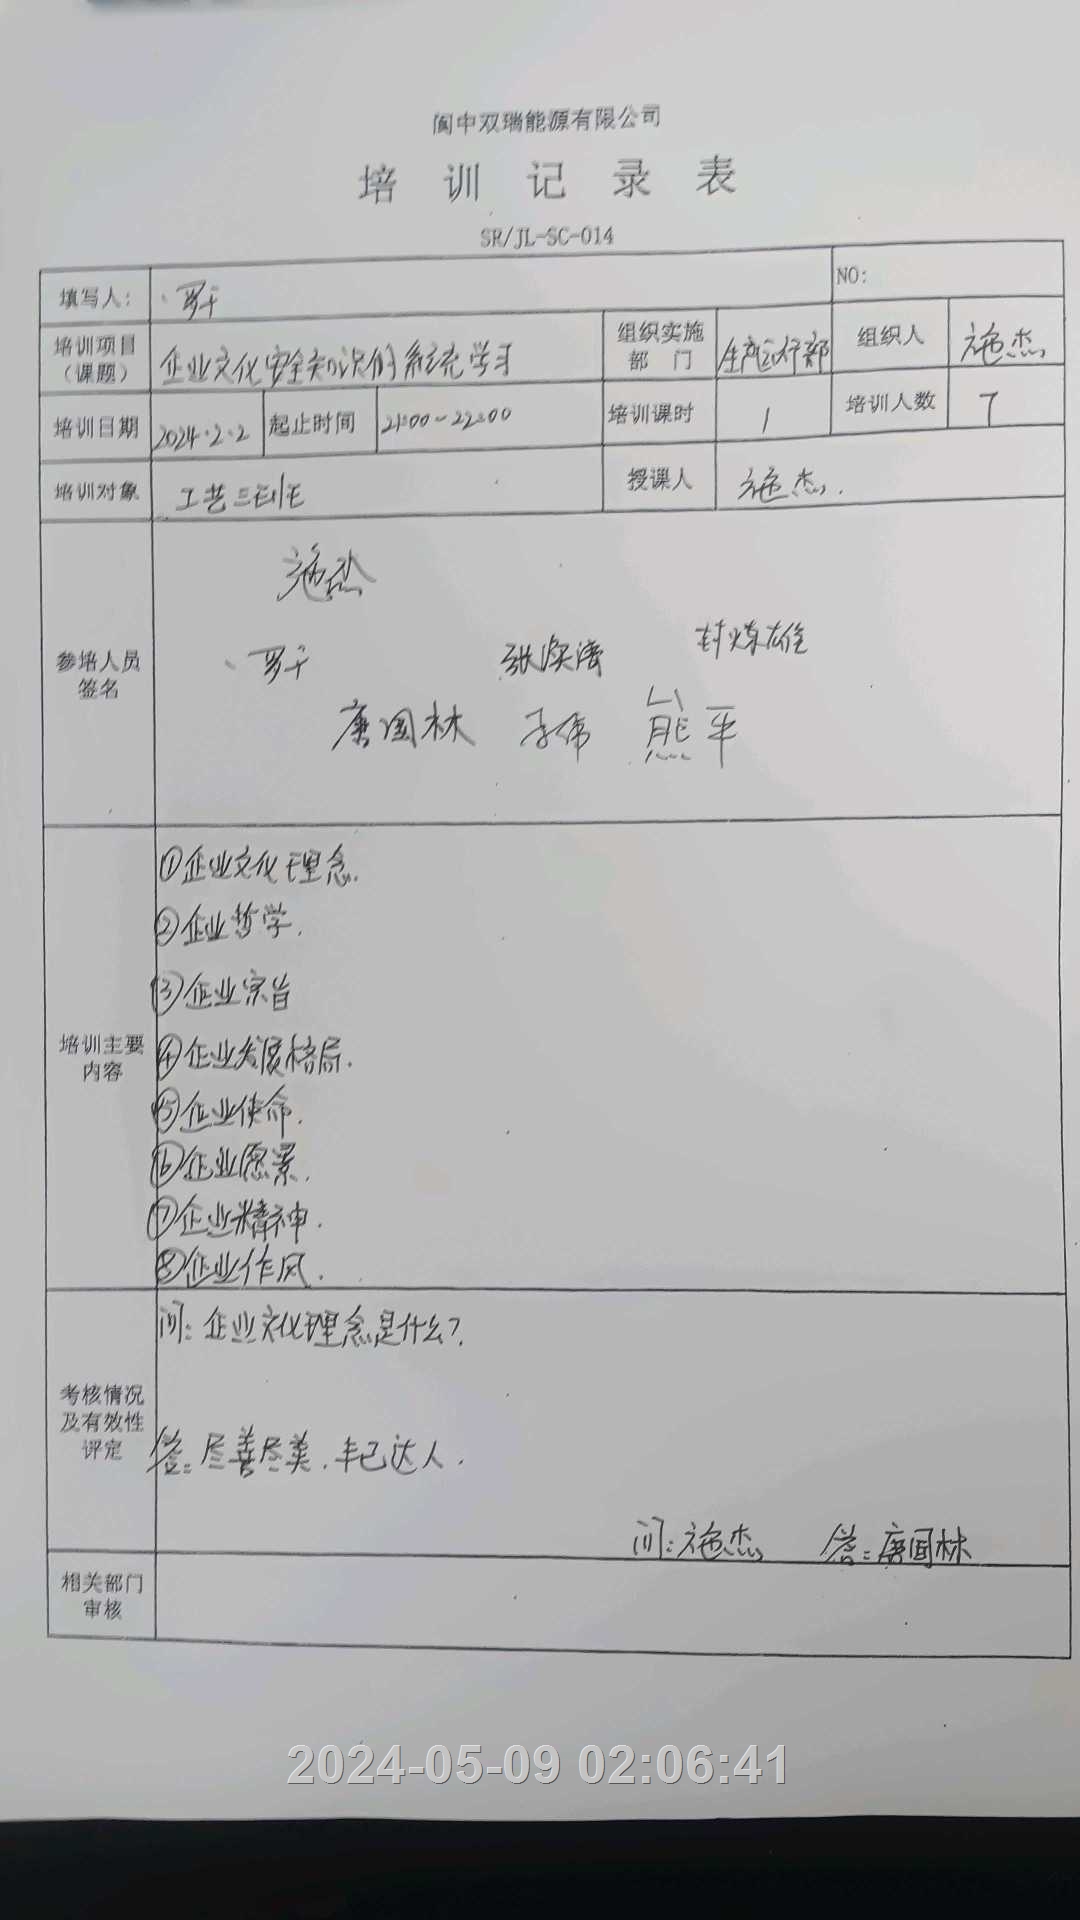 阆中双瑞能源有限公司
培训记录表
SR/JL-SC-014
填写人： 罗千 NO:
培训项目（课题） 企业文化安全知识的系统学习 组织实施部门 生产运行部 组织人 施杰
培训日期 2024.2.2 起止时间 21:00-22:00 培训课时 1 培训人数 7
培训对象 工艺三班 授课人 施杰.
参培人员签名
施杰
罗千 张焕涛 封炼雄
唐国林 李伟 熊平
培训主要内容
①企业文化理念.
②企业哲学.
③企业宗旨
④企业发展格局.
⑤企业使命.
⑥企业愿景.
⑦企业精神.
⑧企业作风.
考核情况及有效性评定
问：企业文化理念是什么？
答：尽善尽美.丰己达人.
问：施杰 答：唐国林
相关部门审核
2024-05-09 02:06:41